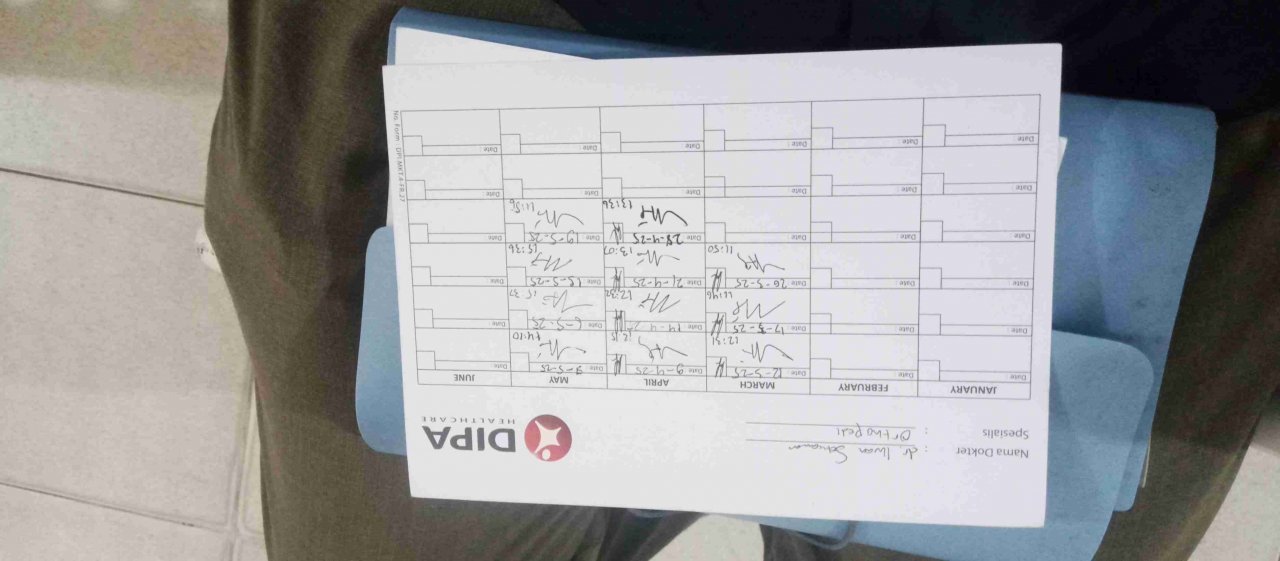 Nama Dokter : dr. Iwan Setiawan
Spesialis : Orthopedi
DIPA
HEALTHCARE
JANUARY FEBRUARY MARCH APRIL MAY JUNE
Date Date Date 12-3-25 Date 9-4-25 Date Date
12:51 12:15 14:10
Date Date Date 17-3-25 Date 14-4-25 Date 6-5-25 Date
11:46 12:32 15:37
Date Date Date 26-3-25 Date 21-4-25 Date Date
11:50 13:07 15:36
Date Date Date Date 28-4-25 Date 19-5-25 Date
13:36 11:56
Date Date Date Date Date Date
Date Date Date Date Date Date
No. Form : DPI.MKT.4-FR.27